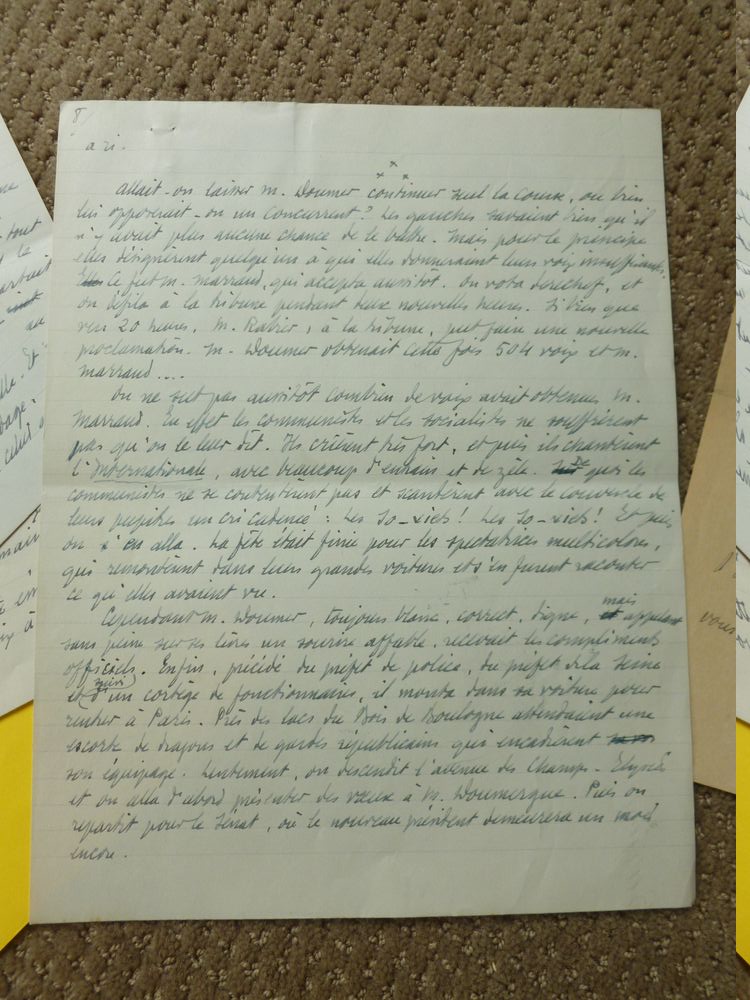 8
a 21.
x x x
Allait-on laisser M. Doumer continuer seul la course, ou bien
lui opposerait-on un concurrent? Les gauches savaient bien qu'il
n'y avait plus aucune chance de le battre. Mais pour le principe
elles désignèrent quelqu'un à qui elles donneraient leurs voix insuffisantes.
Ce fut M. Marraud, qui accepta aussitôt. On vota derechef, et
on défila à la tribune pendant deux nouvelles heures. Si bien que
vers 20 heures, M. Rabier, à la tribune, put faire une nouvelle
proclamation. M. Doumer obtenait cette fois 504 voix et M.
Marraud....
On ne sut pas aussitôt combien de voix avait obtenues M.
Marraud. En effet les communistes et les socialistes ne souffrirent
pas qu'on le leur dît. Ils crièrent très fort, et puis ils chantèrent
l'Internationale, avec beaucoup d'entrain et de zèle. De quoi les
communistes ne se contentèrent pas et scandèrent avec le couvercle de
leurs pupitres un cri cadencé : Les So-viets! Les So-viets! Et puis
on s'en alla. La fête était finie pour les spectatrices multicolores,
qui remontèrent dans leurs grandes voitures et s'en furent raconter
ce qu'elles avaient vu.
Cependant M. Doumer, toujours blanc, correct, digne, mais appelant
sans peine sur ses lèvres un sourire affable, recevait les compliments
officiels. Enfin, précédé du préfet de police, du préfet de la Seine
et suivi d'un cortège de fonctionnaires, il monta dans sa voiture pour
rentrer à Paris. Près des lacs du Bois de Boulogne attendaient une
escorte de dragons et de gardes républicains qui encadrèrent
son équipage. Lentement, on descendit l'avenue des Champs-Elysées
et on alla d'abord présenter des vœux à M. Doumergue. Puis on
repartit pour le Sénat, où le nouveau président demeurera un mois
encore.